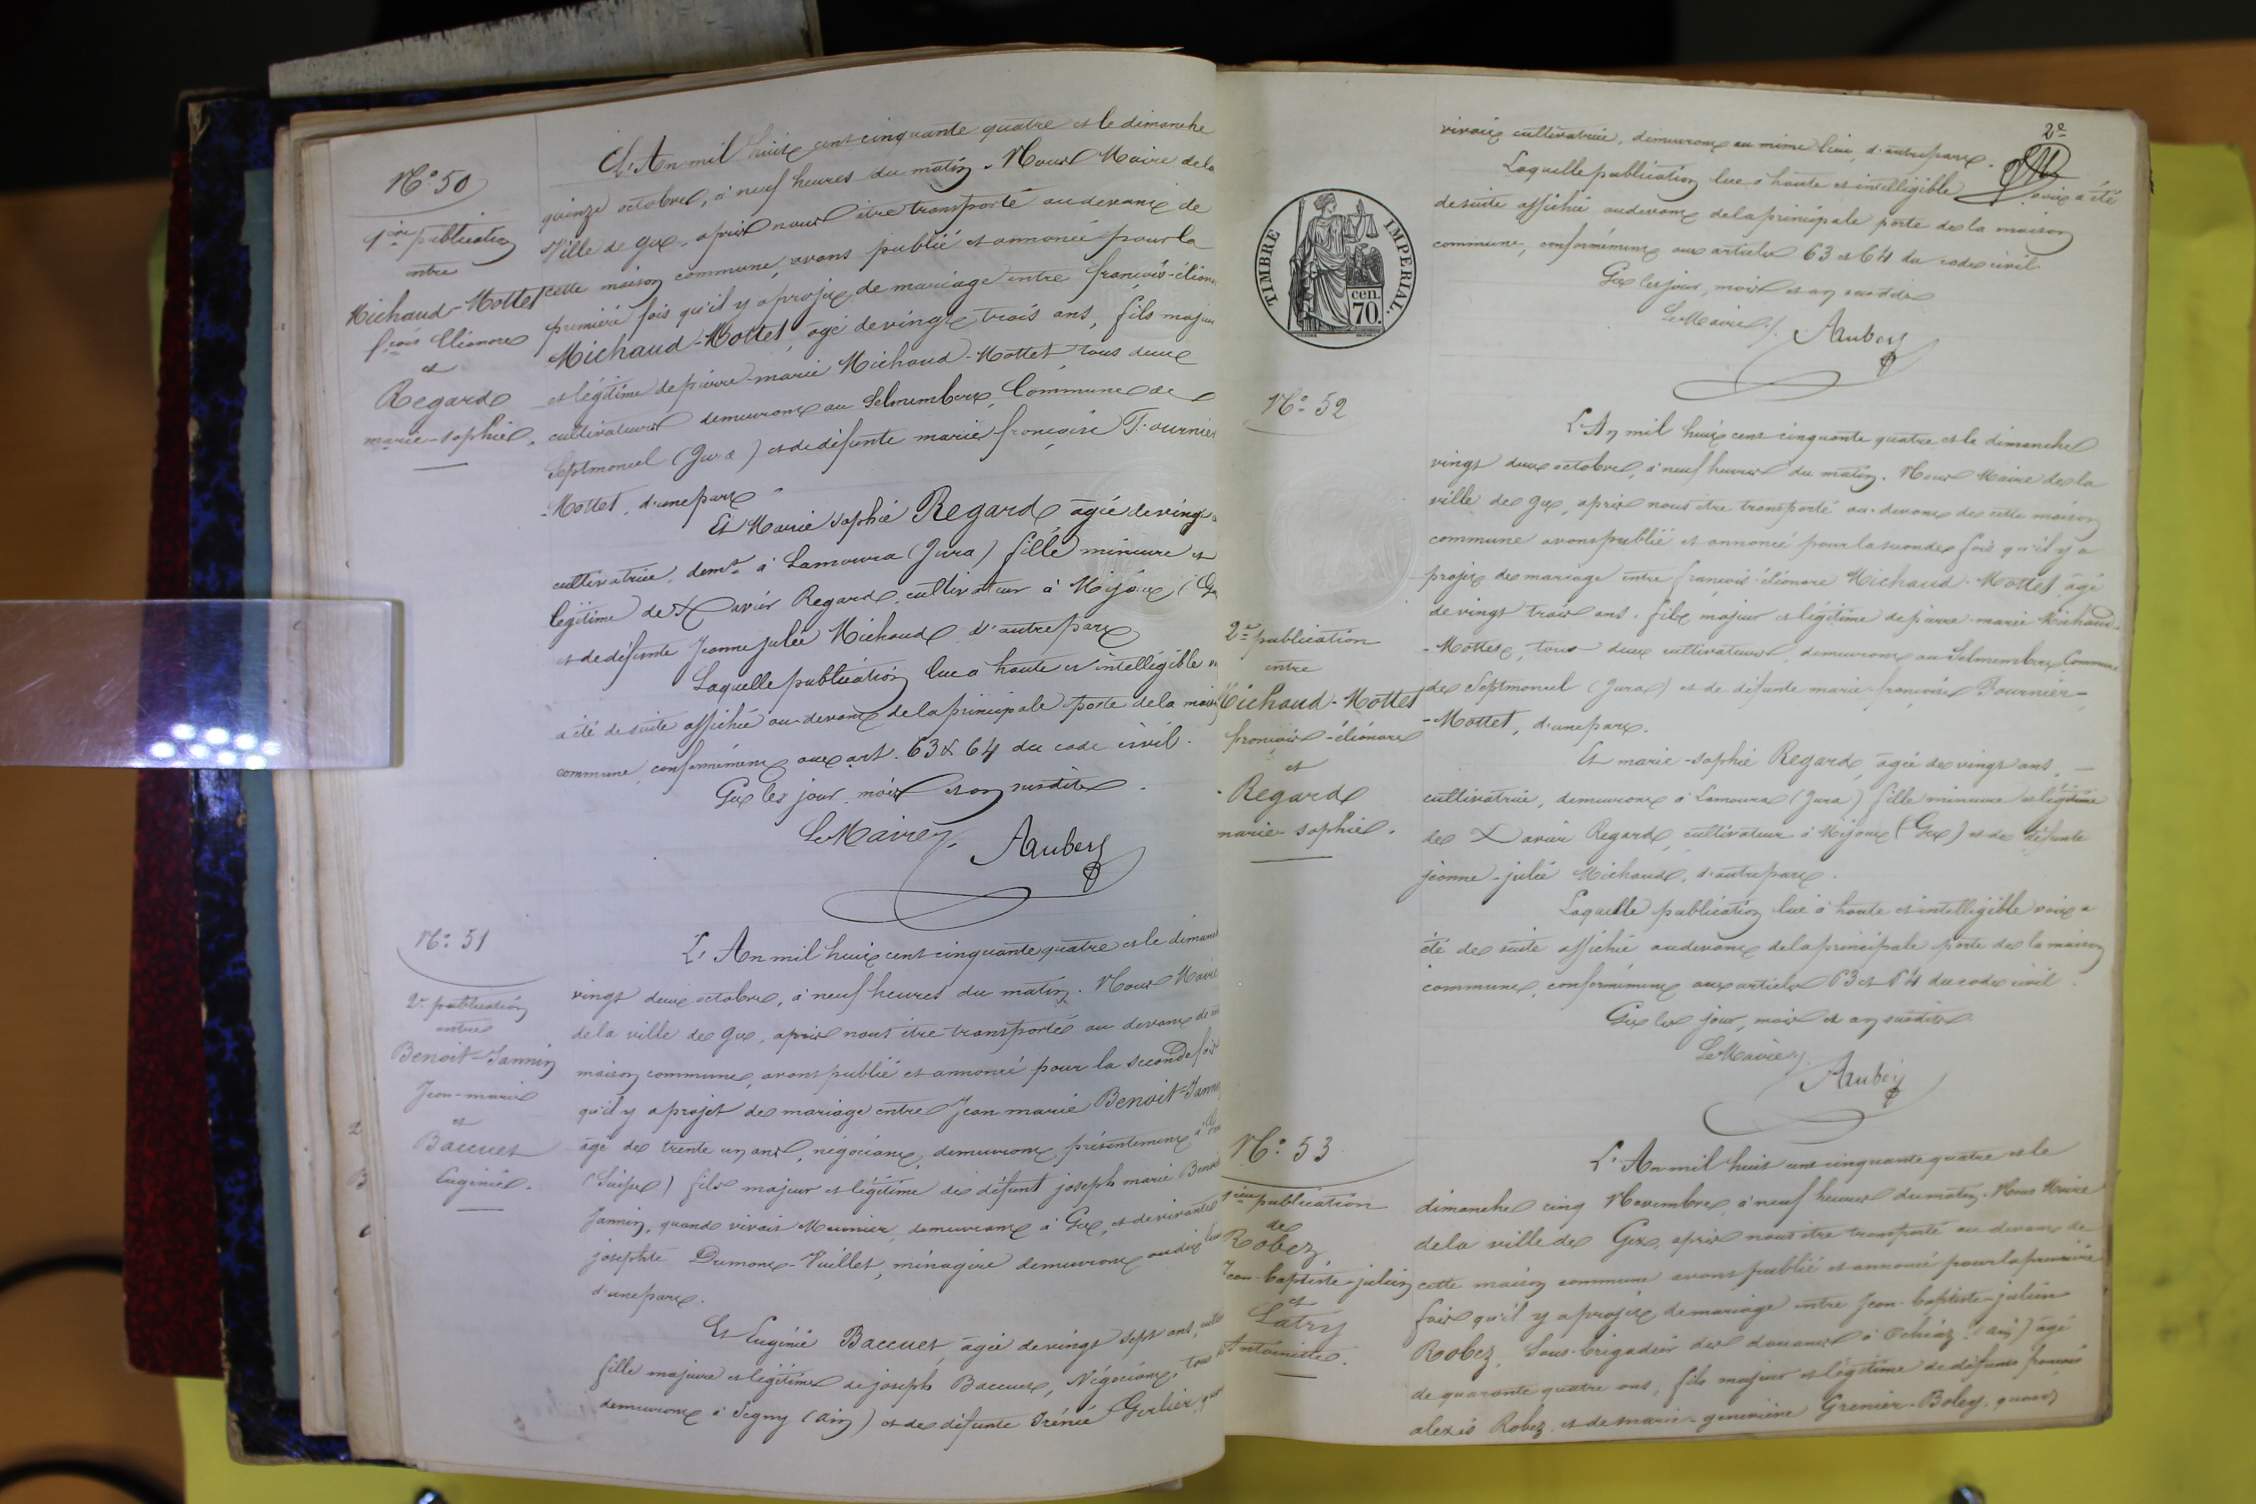 N.° 50
1ère publication
entre
Michaud-Mottet
fçois Eléonore
et
Regard
marie-sophie.
L'An mil huit cent cinquante quatre et le dimanche
quinze octobre, à neuf heures du matin. Nous Maire de la
Ville de Gex, après nous être transporté au devant de
cette maison commune, avons publié et annoncé pour la
première fois qu'il y a projet de mariage entre françois-éléonore
Michaud-Mottet, âgé de vingt trois ans, fils majeur
et légitime de pierre-marie Michaud-Mottet tous deux
cultivateurs demeurant au Selmembert, Commune de
Septmoncel (Jura) et de défunte marie françoise Fournier
-Mottet, d'une part
Et Marie Sophie Regard âgée de vingt
cultivatrice, demt. à Lamoura (Jura) fille mineure et
légitime de Xavier Regard, cultivateur à Mijoux (Gex
et de défunte Jeanne julie Michaud d'autre part
Laquelle publication lue à haute et intelligible
a été de suite affichée au devant de la principale porte de la maison
commune, conformément aux art. 63 & 64 du code civil.
Gex les jour, mois et an susdits.
Le Maire,
Aubery
N.° 51
2e publication
entre
Benoit-Jannin
Jean-marie
et
Baccuet
Eugénie.
L'An mil huit cent cinquante quatre et le dimanche
vingt deux octobre, à neuf heures du matin. Nous Maire
de la ville de Gex, après nous être transporté au devant de
maison commune, avons publié et annoncé pour la seconde fois
qu'il y a projet de mariage entre Jean marie Benoit-Jannin
âgé de trente un ans, négociant, demeurant présentement à
(Suisse) fils majeur et légitime de défunt joseph marie Benoit
Jannin, quand vivait Meunier, demeurant à Gex, et de vivante
josephte Dumont-Vuillet, ménagère demeurant au dit lieu
d'une part.
Et Eugénie Baccuet, âgée de vingt sept ans,
fille majeure et légitime de joseph Baccuet, Négociant, tous
demeurant à Segny (Ain) et de défunte Irénée Gerlier,
2e
vivait cultivatrice, demeurant au même lieu, d'autre part.
Laquelle publication lue à haute et intelligible voix a été
de suite affichée au devant de la principale porte de la maison
commune, conformément aux articles 63 et 64 du code civil.
Gex les jour, mois et an susdits
Le Maire,
Aubery
TIMBRE IMPERIAL.
cen.
70.
N.° 52
2e publication
entre
Michaud-Mottet
françois-éléonore
et
Regard
marie-sophie.
L'An mil huit cent cinquante quatre et le dimanche
vingt deux octobre, à neuf heures du matin. Nous Maire de la
ville de Gex, après nous être transporté au devant de cette maison
commune avons publié et annoncé pour la seconde fois qu'il y a
projet de mariage entre françois-éléonore Michaud-Mottet âgé
de vingt trois ans, fils majeur et légitime de pierre-marie Michaud-
-Mottet, tous deux cultivateurs demeurant au Selmembert Commune
de Septmoncel (Jura) et de défunte marie-françoise Fournier-
-Mottet, d'une part.
Et marie-sophie Regard, âgée de vingt ans,
cultivatrice, demeurant à Lamoura (Jura) fille mineure et légitime
de Xavier Regard, cultivateur à Mijoux (Gex) et de défunte
jeanne-julie Michaud, d'autre part.
Laquelle publication lue à haute et intelligible voix a
été de suite affichée au devant de la principale porte de la maison
commune, conformément aux articles 63 et 64 du code civil.
Gex les jour, mois et an susdits
Le Maire,
Aubery
N.° 53
1ère publication
de
Robez
Jean-baptiste-julien
et
Latry
Antoinette.
L'An mil huit cent cinquante quatre et le
dimanche cinq Novembre, à neuf heures du matin. Nous Maire
de la ville de Gex, après nous être transporté au devant de
cette maison commune avons publié et annoncé pour la première
fois qu'il y a projet de mariage entre Jean-baptiste-julien
Robez, Sous-brigadier des douanes à Ochiaz (Ain) âgé
de quarante quatre ans, fils majeur et légitime de défunt françois
alexis Robez, et de marie-geneviève Grenier-Boley, quand